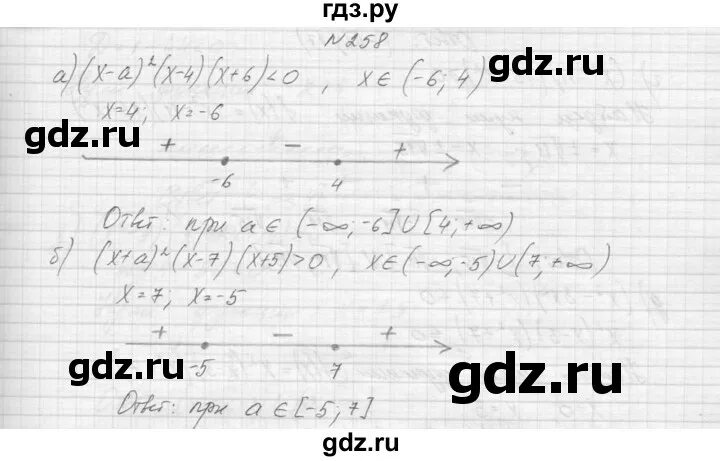 гдз.ру
N 258
а) (x-a)²(x-4)(x+6)<0 , x∈(-6; 4)
x=4; x=-6
gdz.ru gdz.ru
+ − +
-6 4
Ответ: при a∈(-∞;-6]∪[4;+∞)
б) (x+a)²(x-7)(x+5)>0, x∈(-∞;-5)∪(7;+∞)
x=7; x=-5
+ − +
gdz.ru gdz.ru
-5 7
Ответ: при a∈[-5;7]
gdz.ru